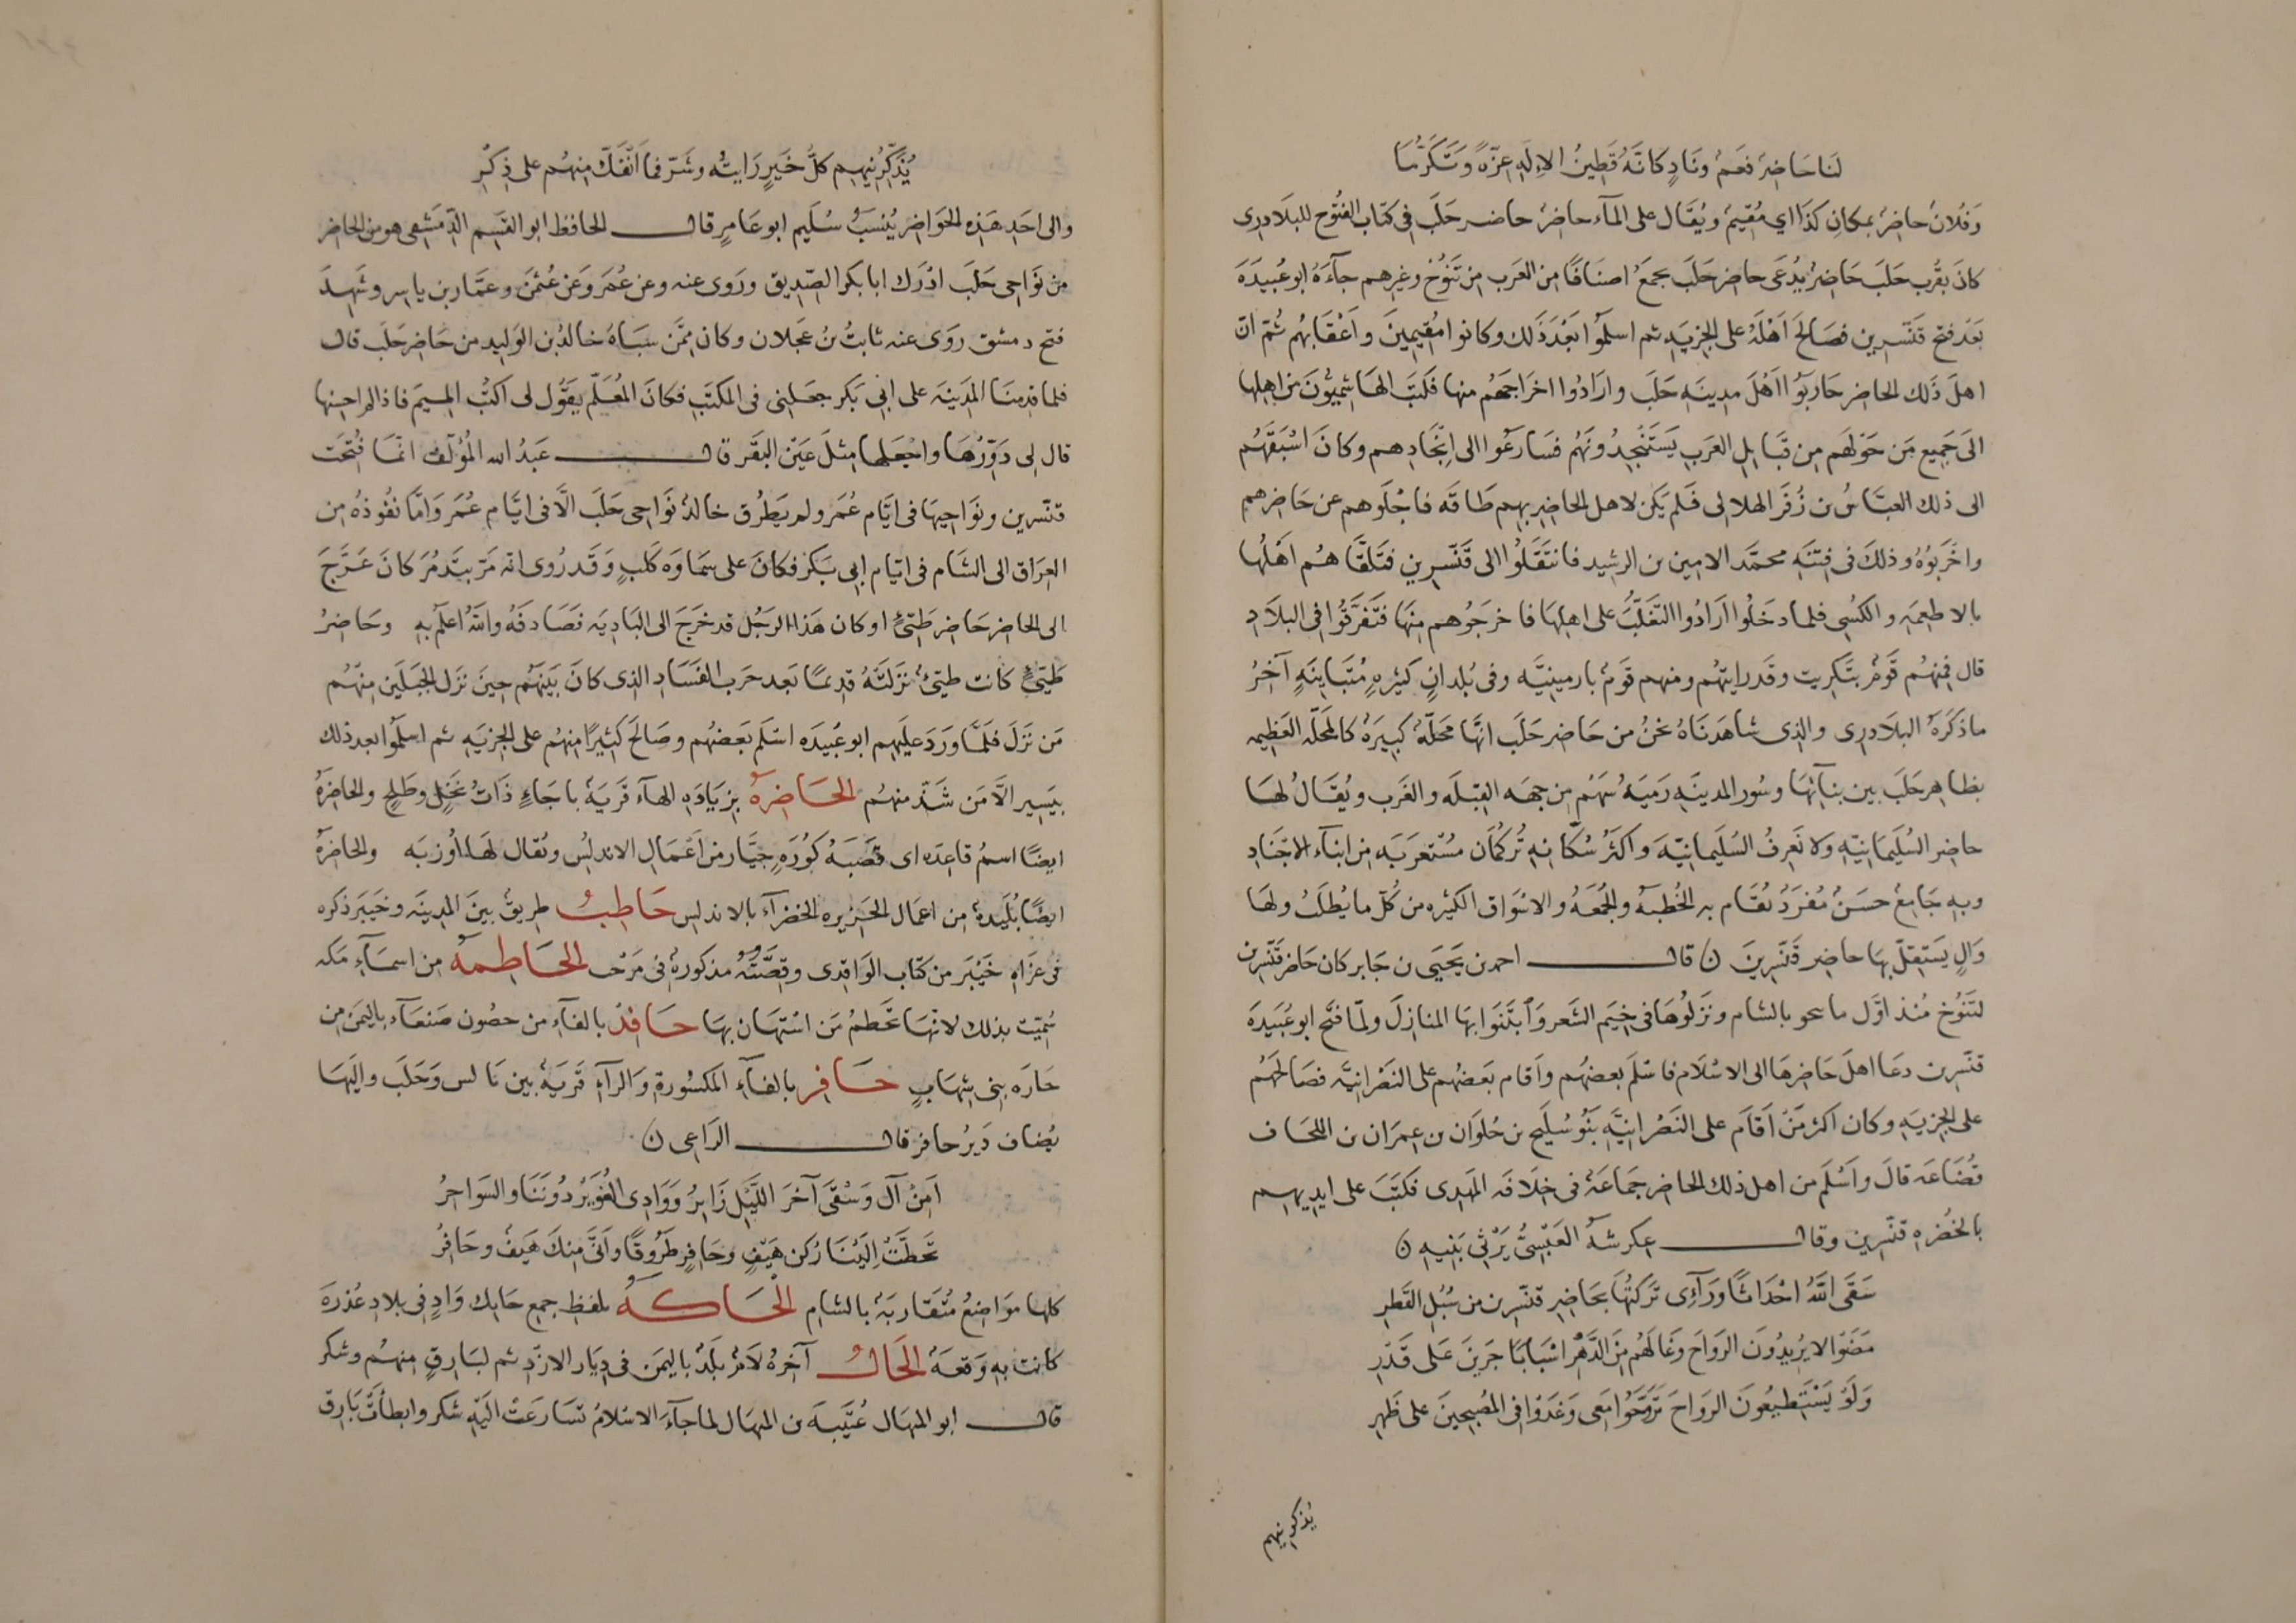 لنا حاضر فعم وناد كانه قطين الاله عزة وتكرما
وفلان حاضر بمكان كذا اي مقيم ويقال على المآء حاضر حاضر حلب في كتاب الفتوح للبلاذرى
كان بقرب حلب حاضر يدعى حاضر حلب يجمع اصنافا من العرب من تنوخ وغيرهم جآءه ابو عبيدة
بعد فتح قنسرين فصالح اهله على الجزيه ثم اسلموا بعد ذلك وكانوا مقيمين واعقابهم ثم ان
اهل ذلك الحاضر حاربوا اهل مدينه حلب وارادوا اخراجهم منها فكتب الهاشميون من اهلها
الى جميع من حولهم من قبايل العرب يستنجدونهم فسارعوا الى انجادهم وكان اسبقهم
الى ذلك العباس بن زفر الهلالى فلم يكن لاهل الحاضر بهم طاقه فاجلوهم عن حاضرهم
واخربوه وذلك فى فتنه محمد الامين بن الرشيد فانتقلوا الى قنسرين فتلقاهم اهلها
بالاطعمه والكسى فلما دخلوا ارادوا التغلب على اهلها فاخرجوهم منها فتفرقوا فى البلاد
قال فمنهم قوم بتكريت وقد رايتهم ومنهم قوم بارمينيه وفى بلدان كثيره متباينه آخر
ما ذكره البلاذرى والذى شاهدناه نحن من حاضر حلب انها محلة كبيرة كالمحلّه العظيمه
بظاهر حلب بين بنآئها وسور المدينه رمية سهم من جهه القبله والغرب ويقال لها
حاضر السليمانيه ولا نعرف السليمانيه واكثر سكانه تركمان مستعربه من ابنآء الاجناد
وبه جامع حسن مفرد تقام به الخطبه والجمعه والاسواق الكثيره من كل ما يطلب ولها
وال يستقل بها حاضر قنسرين ن قال احمد بن يحيى بن جابر كان حاضر قنسرين
لتنوخ منذ اول ما تنخوا بالشام ونزلوها فى خيم الشعر وابتنوا بها المنازل ولما فتح ابو عبيدة
قنسرين دعا اهل حاضرها الى الاسلام فاسلم بعضهم واقام بعضهم على النصرانيه فصالحهم
على الجزيه وكان اكثر من اقام على النصرانيه بنو سليح بن حلوان بن عمران بن الحاف
قضاعه قال واسلم من اهل ذلك الحاضر جماعة فى خلافه المهدى فكتب على ايديهم
بالخضره قنسرين وقال عكرشة العبسى يرثى بنيه ن
سقى الله اجداثا ورآءى تركتها بحاضر قنسرين من سبل القطر
مضوا لا يريدون الرواح وغالهم من الدهر اسبابا جرين على قدر
ولو يستطيعون الرواح تروحوا معى وغدوا فى المصبحين على ظهر
يذكرنيهم
يذكرنيهم كل خير رايته وشر فما انفك منهم على ذكر
والى احد هذه الحواضر ينسب سليم ابو عامر قال الحافظ ابو القسم الدمشقى هو من الحاضر
من نواحى حلب ادرك ابا بكر الصديق وروى عنه وعن عمر وعن عثمن وعمار بن ياسر وشهد
فتح دمشق روى عنه ثابت بن عجلان وكان ممن سباه خالد بن الوليد من حاضر حلب قال
فلما قدمنا المدينه على ابى بكر جعلنى فى المكتب فكان المعلم يقول لى اكتب الميم فاذا لم احسنها
قال لى دورها واجعلها مثل عين البقر قال عبد الله المؤلف انما فتحت
قنسرين ونواحيها فى ايام عمر ولم يطرق خالد نواحى حلب الا فى ايام عمر واما نفوذه من
العراق الى الشام فى ايام ابى بكر فكان على سماوه كلب وقد روى انه مر بتدمر كان عرج
الى الحاضر حاضر طيئ او كان هذا الرجل قد خرج الى الباديه فصادفه والله اعلم به وحاضر
طيئ كانت طيئ نزلته قديما بعد حرب الفساد الذى كان بينهم حين نزل الجبلين منهم
من نزل فلما ورد عليهم ابو عبيده اسلم بعضهم وصالح كثيرا منهم على الجزيه ثم اسلموا بعد ذلك
بيسير الا من شذ منهم الحاضرة بزياده الهآء قرية باجاء ذات نخل وطلح والحاضرة
ايضا اسم قاعده اى قصبة كوره جيان من اعمال الاندلس ويقال لها اوزبه والحاضرة
ايضا بليدة من اعمال الجزيره الخضرآء بالاندلس حاطب طريق بين المدينه وخيبر ذكره
فى غزاه خيبر من كتاب الواقدى وقصته مذكورة فى مرحب الحاطمة من اسمآء مكه
سميت بذلك لانها تحطم من استهان بها حافد بالفآء من حصون صنعآء باليمن من
حازه بنى شهاب حافر بالفآء المكسورة والرآء قرية بين بالس وحلب واليها
يضاف دير حافر قال الراعى ن
امن آل وسقى آخر الليل زاير ووادى الغوير دوننا والسواجر
تخطت الينا ركن هيف وحافر طروقا وانى منك هيف وحافر
كلها مواضع متقاربة بالشام الحاكة بلفظ جمع حايك واد فى بلاد عذرة
كانت به وقعة الحال آخره لام بلد باليمن فى ديار الازد ثم لبارق منهم وشكر
قال ابو المنهال عتيبة بن المنهال لما جآء الاسلام تسارعت اليه شكر وابطأت بارق